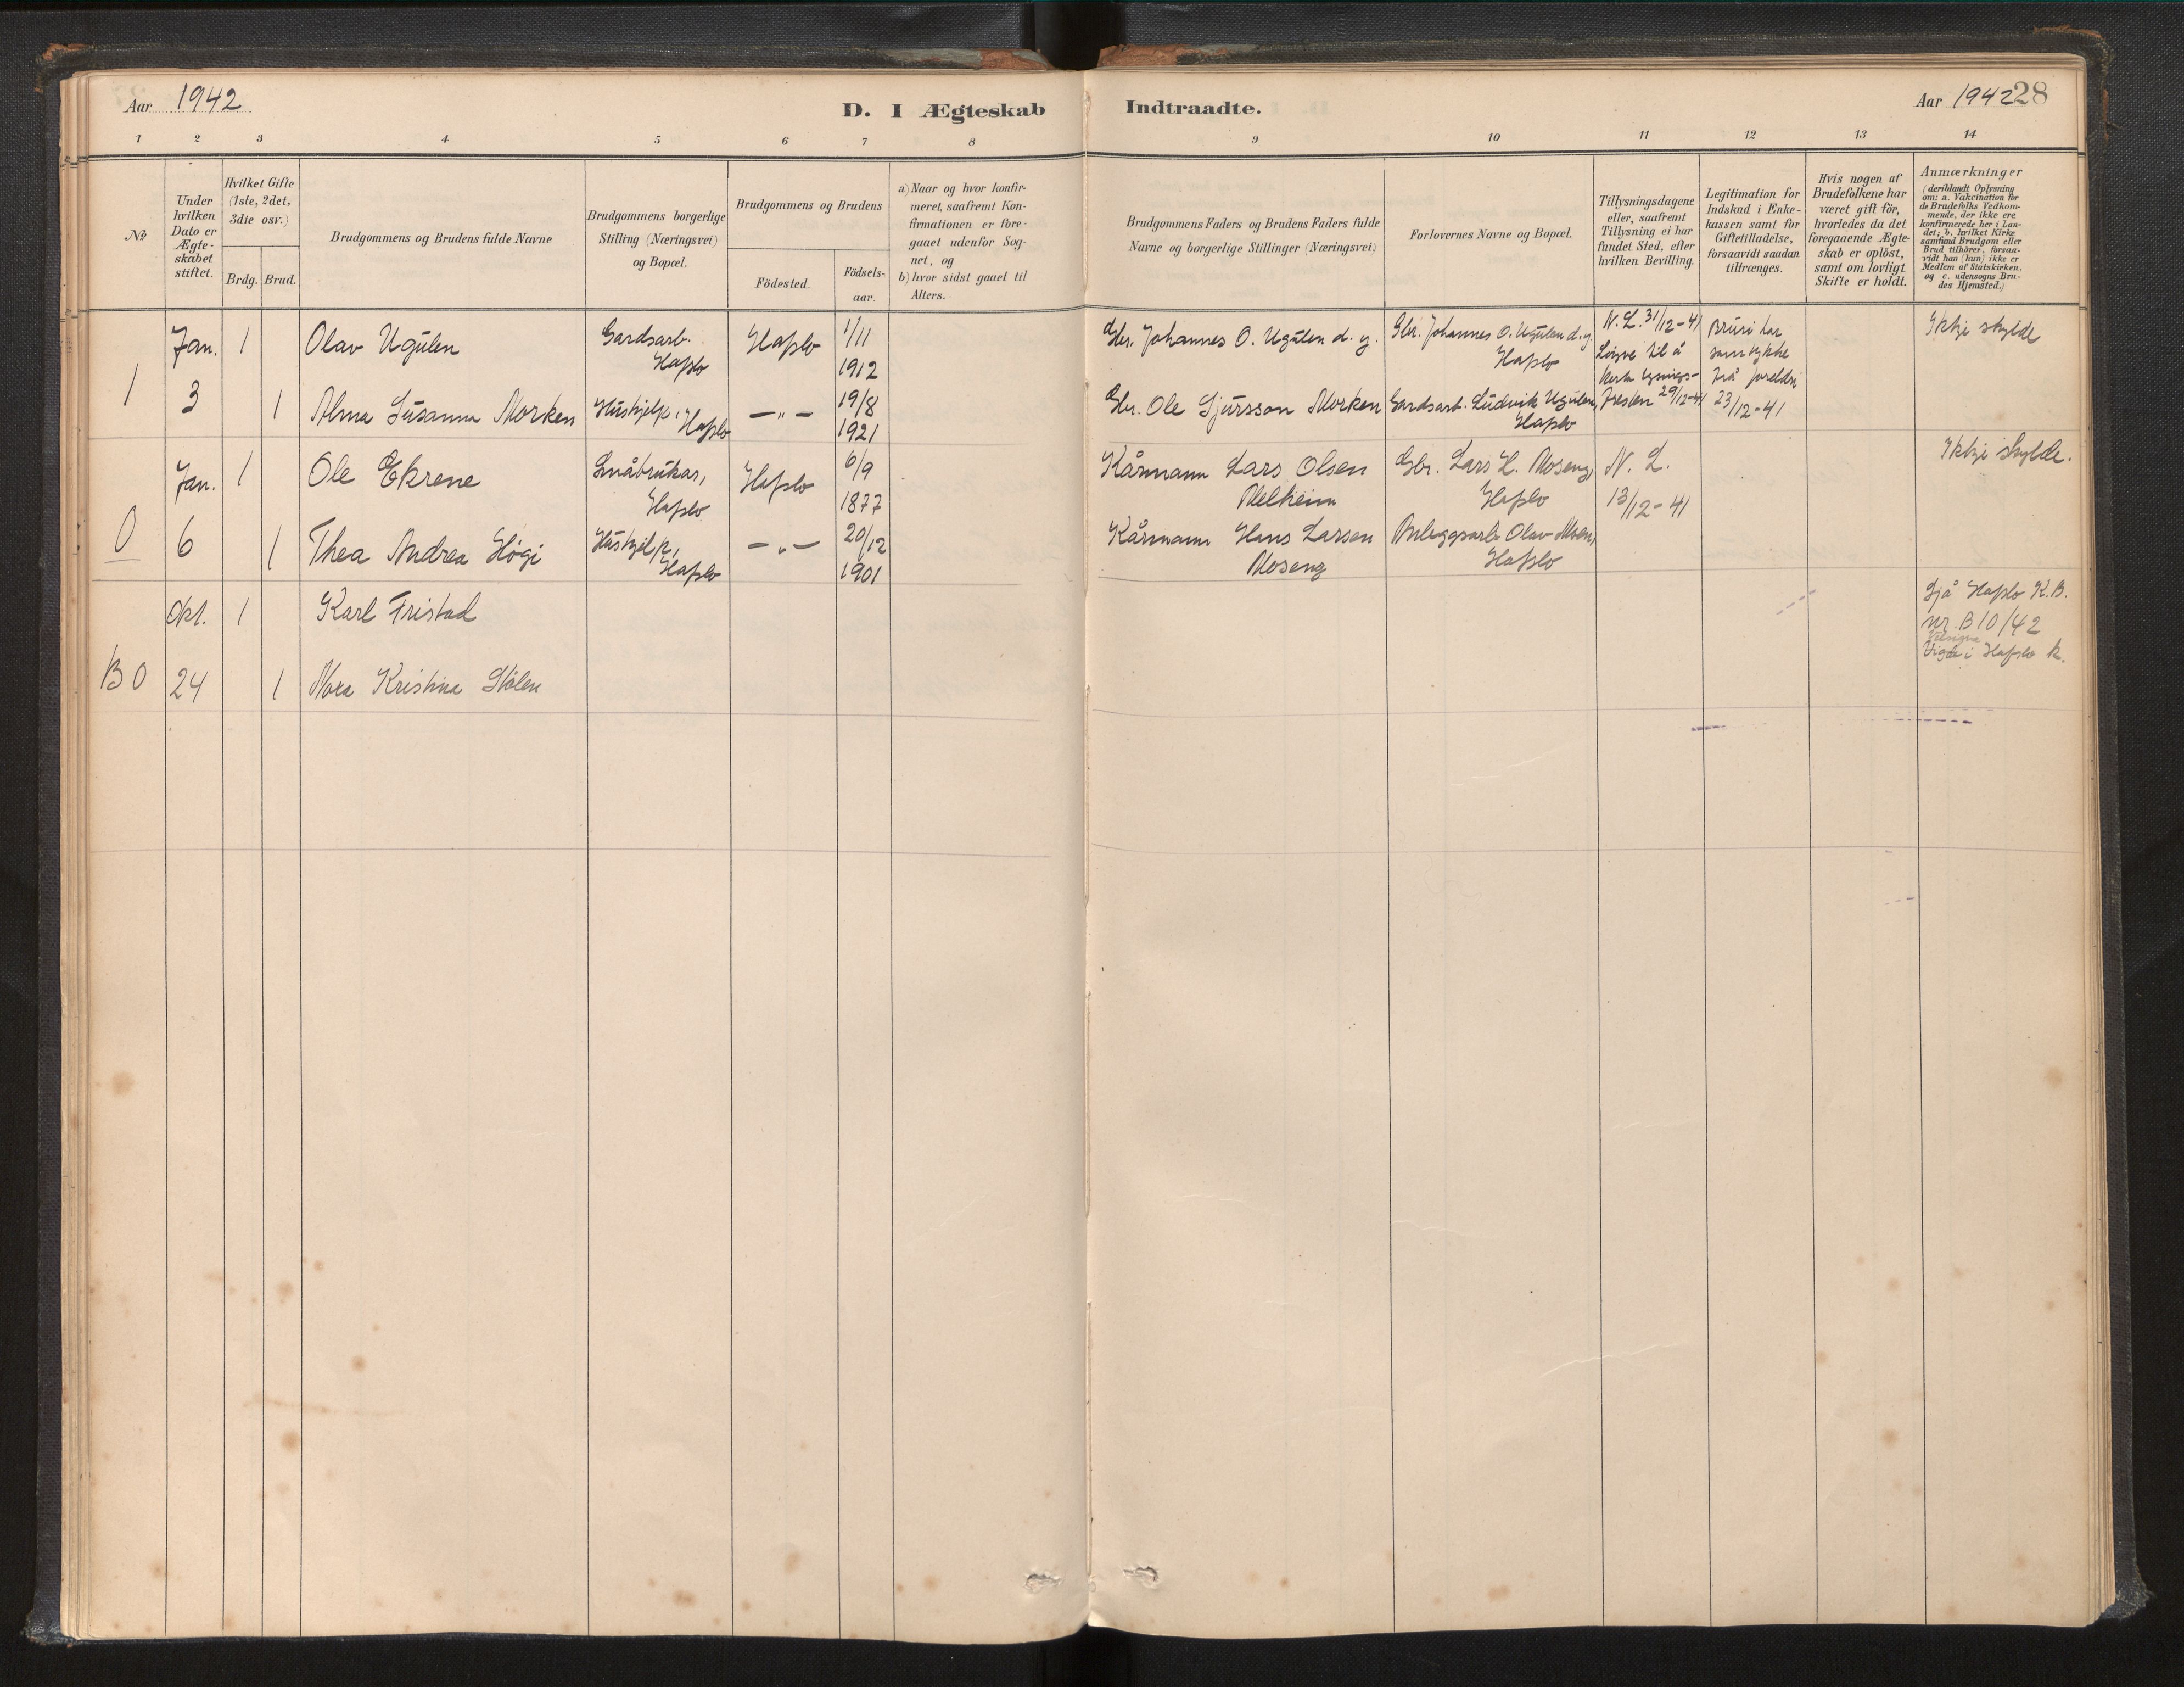 Aar 1942
D. I Ægteskab Indtraadte.
Aar 1942 28
1 2 3 4 5 6 7 8 9 10 11 12 13 14
№
Under
hvilken
Dato er
Ægte-
skabet
stiftet.
Hvilket Gifte
(1ste, 2det,
3die osv.)
Brdg. Brud.
Brudgommens og Brudens fulde Navne
Brudgommens borgerlige
Stilling (Næringsvei)
og Bopæl.
Brudgommens og Brudens
Födested.
Födsels-
aar.
a) Naar og hvor konfir-
meret, saafremt Kon-
firmationen er fore-
gaaet udenfor Sog-
net, og
b) hvor sidst gaaet til
Alters.
Brudgommens Faders og Brudens Faders fulde
Navne og borgerlige Stillinger (Næringsvei)
Forlovernes Navne og Bopæl.
Tillysningsdagene
eller, saafremt
Tillysning ei har
fundet Sted, efter
hvilken Bevilling.
Legitimation for
Indskud i Enke-
kassen samt for
Giftetilladelse,
forsaavidt saadan
tiltrænges.
Hvis nogen af
Brudefolkene har
været gift för,
hvorledes da det
foregaaende Ægte-
skab er oplöst,
samt om lovligt
Skifte er holdt.
Anmærkninger
(deriblandt Oplysning
om: a. Vakcination för
de Brudefolks Vedkom-
mende, der ikke ere
konfirmerede her i Lan-
det; b. hvilket Kirke
samfund Brudgom eller
Brud tilhörer, forsaa-
vidt han (hun) ikke er
Medlem af Statskirken.
og c. udensogns Bru-
des Hjemsted.)
1
Jan.
3
1
Olav Ugulen
Gardsarb.
Hafslo
Hafslo
1/11
1912
Gbr. Johannes O. Ugulen d. y.
Gbr. Johannes O. Ugulen d. y.
Hafslo
N. L. 31/12-41
Løyve til å
korte lysnings-
fresten 29/12-41
Bruri har
samtykke
frå foreldri
23/12-41
Ikkje skylde
1
Alma Susanna Morken
Hushjelp,
Hafslo
— " —
19/8
1921
Gbr. Ole Sjursson Morken
Gardsarb. Ludvik Ugulen,
Hafslo
0
Jan.
6
1
Ole Ekrene
Småbrukar,
Hafslo
Hafslo
6/9
1877
Kårmann Lars Olsen
Melheim
Gbr. Lars H. Moseng,
Hafslo
N. L.
13/12-41
Ikkje skylde.
1
Thea Andrea Høgi
Hushjelp,
Hafslo
— " —
20/12
1901
Kårmann Hans Larsen
Moseng
Anleggsarb. Olav Moen,
Hafslo
B 0
Okt.
24
1
Karl Fristad
Sjå Hafslo K.B.
nr. B 10/42
Vigde i Hafslo k.
1
Nora Kristina Stølen